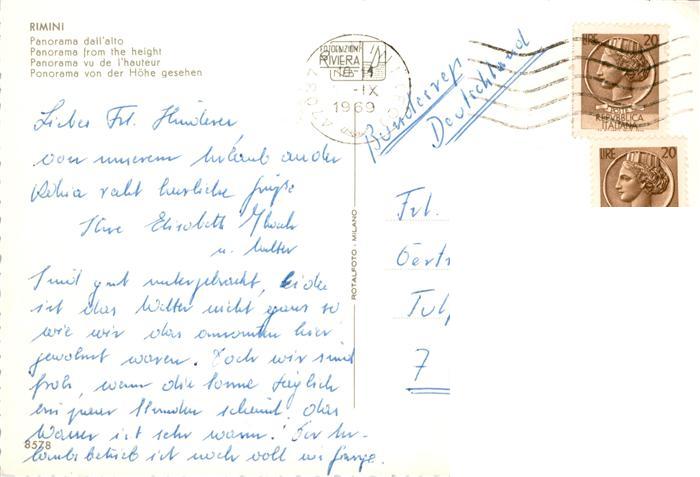 RIMINI
Panorama dall'alto
Panorama from the height
Panorama vu de l'hauteur
Ponorama von der Höhe gesehen
RIVIERA
1969
LIRE 20
POSTE
REPUBBLICA
ITALIANA
LIRE 20
Bundesrep
Deutschland
Liebes Frl.
von unserem Urlaub an der
Adria recht herzliche Grüße
Ihre Elisabeth
u. Walter
Sind gut untergebracht, leider
ist das Wetter nicht ganz so
wie wir das ansonsten hier
gewohnt waren. Doch wir sind
froh, wenn die Sonne täglich
ein paar Stunden scheint, das
Wasser ist sehr warm. Der Ur-
laubsbetrieb ist noch voll im Gange.
8578
ROTALFOTO - MILANO
Frl.
7